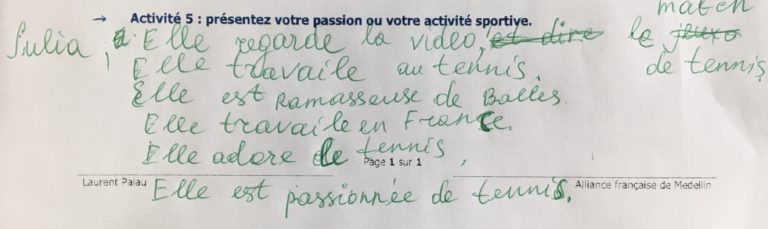 → Activité 5 : présentez votre passion ou votre activité sportive.
match
Julia, a. Elle regarde la video, et dire le jeuxo
Elle travaile au tennis. de tennis
Elle est Ramasseuse de Balles.
Elle travaile en France.
Elle adore le tennis,
Page 1 sur 1
Laurent Palau Alliance française de Medellin
Elle est passionnée de tennis.